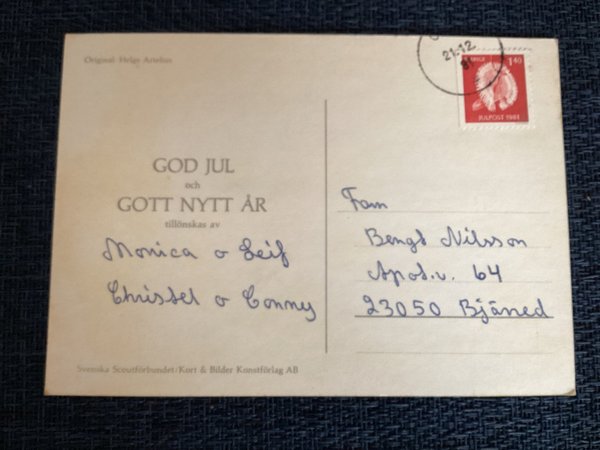 Original: Helge Artelius
21.12.
81
SVERIGE 1.40
JULPOST 1981
GOD JUL
och
GOTT NYTT ÅR
tillönskas av
Monica o Leif
Christel o Conny
Fam
Bengt Nilsson
Apot.v. 64
23050 Bjärred
Svenska Scoutförbundet/Kort & Bilder Konstförlag AB